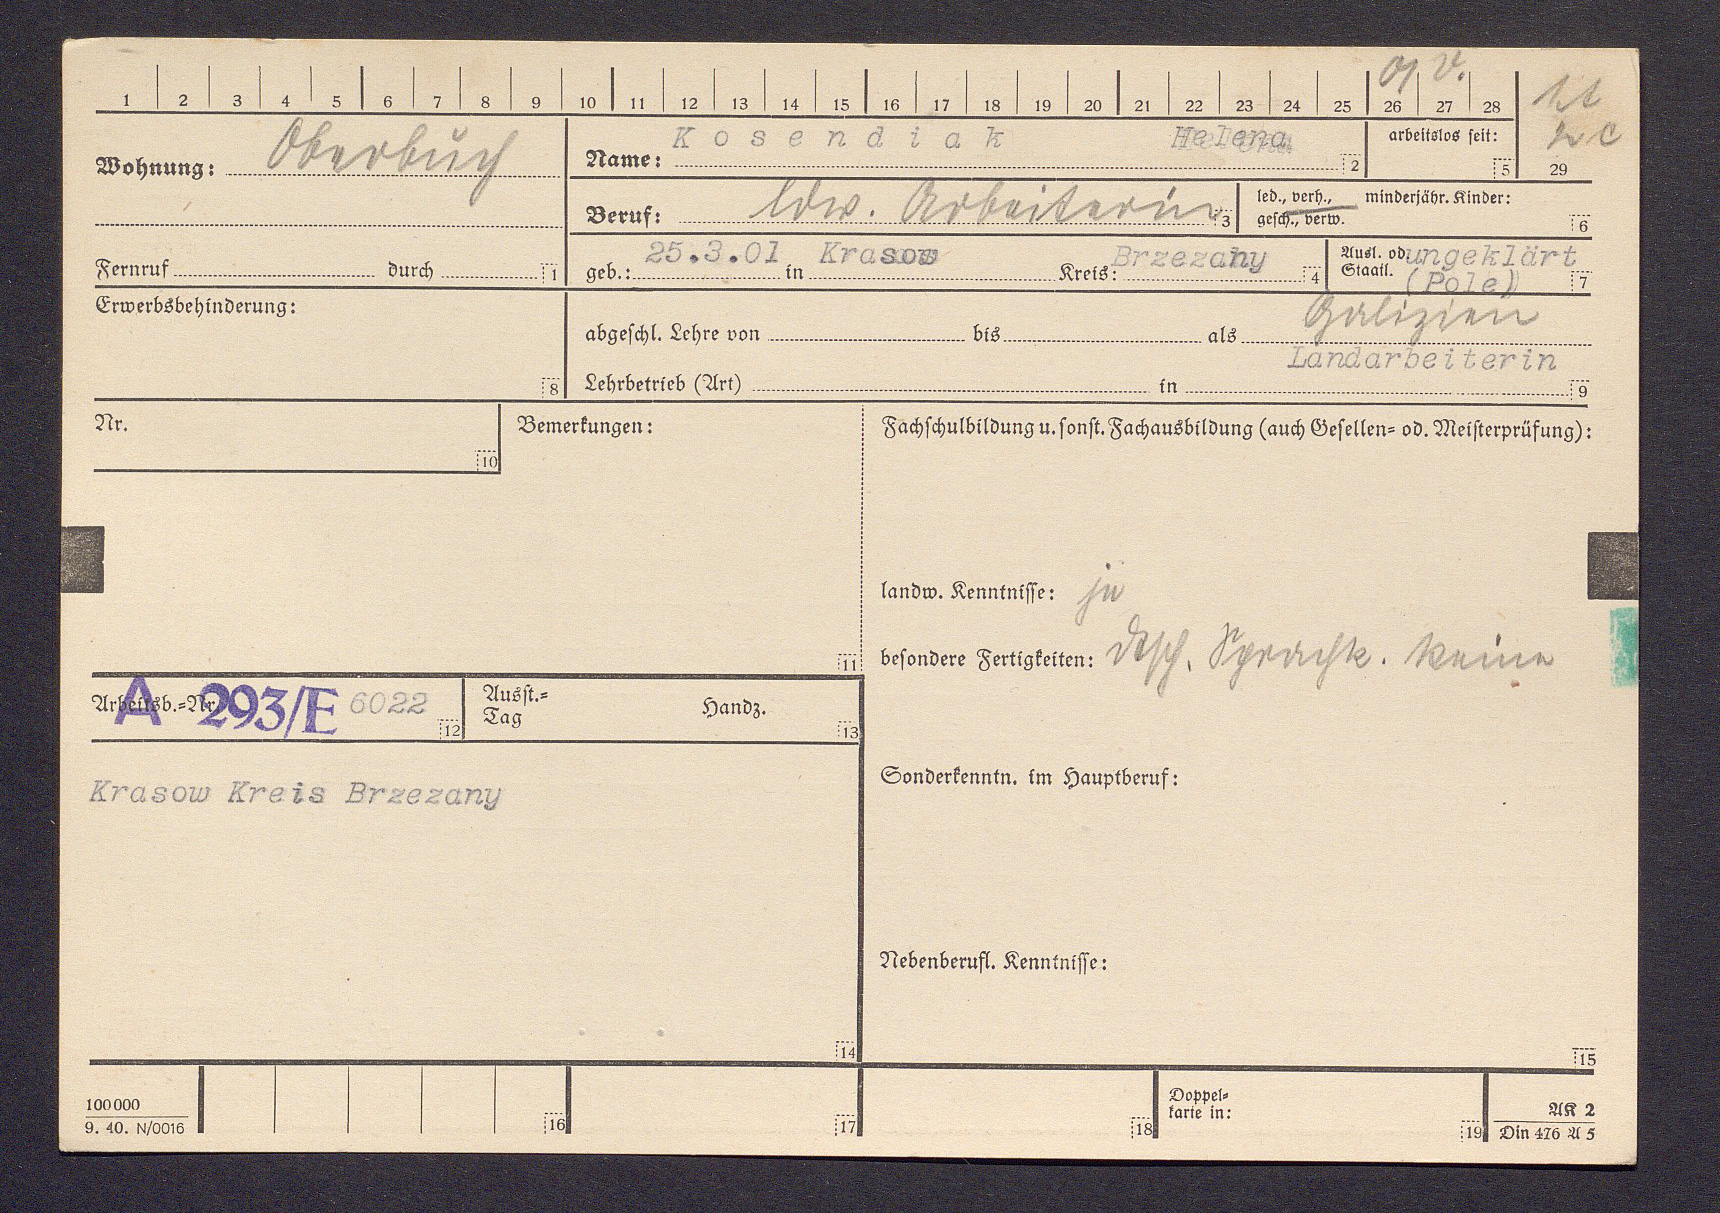 1 2 3 4 5 6 7 8 9 10 11 12 13 14 15 16 17 18 19 20 21 22 23 24 25 26 27 28
29
Wohnung: Oberbuch
Name: Kosendiak Helena 2
arbeitslos seit: 5
Beruf: ldw. Arbeiterin 3
led., verh., minderjähr. Kinder:
gesch., verw. 6
Fernruf durch 1
geb.: 25.3.01 in Krasow Kreis: Brzezany 4
Ausl. od. ungeklärt
Staatl. (Pole) 7
Galizien
Erwerbsbehinderung: 8
abgeschl. Lehre von bis als
Landarbeiterin
Lehrbetrieb (Art) in 9
Nr. 10
Bemerkungen: 11
Fachschulbildung u. sonst. Fachausbildung (auch Gesellen= od. Meisterprüfung):
landw. Kenntnisse: ja
besondere Fertigkeiten: dtsch. Sprachk. keine
Arbeitsb.=Nr. A 293/E 6022 12
Ausst.=
Tag Handz. 13
Krasow Kreis Brzezany
14
Sonderkenntn. im Hauptberuf:
Nebenberufl. Kenntnisse:
15
100 000
9. 40. N/0016
16
17
18
Doppel=
karte in: 19
AK 2
Din 476 A 5